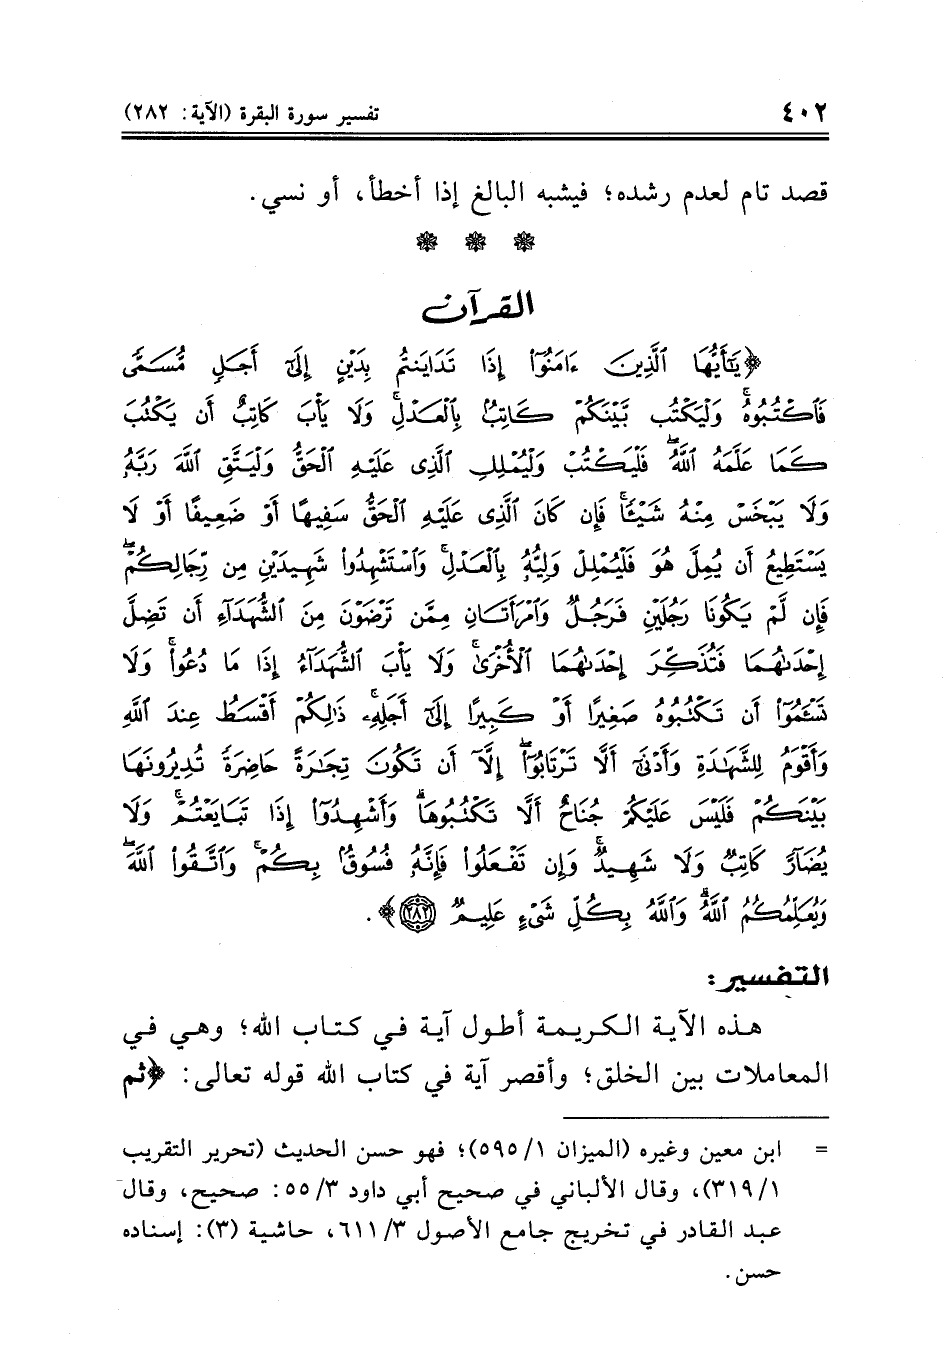 ٤٠٢ تفسير سورة البقرة (الآية: ٢٨٢)
قصد تام لعدم رشده؛ فيشبه البالغ إذا أخطأ، أو نسي.
القرآن
﴿يَٰٓأَيُّهَا ٱلَّذِينَ ءَامَنُوٓا۟ إِذَا تَدَايَنتُم بِدَيْنٍ إِلَىٰٓ أَجَلٍ مُّسَمًّى
فَٱكْتُبُوهُ ۚ وَلْيَكْتُب بَّيْنَكُمْ كَاتِبٌۢ بِٱلْعَدْلِ ۚ وَلَا يَأْبَ كَاتِبٌ أَن يَكْتُبَ
كَمَا عَلَّمَهُ ٱللَّهُ ۚ فَلْيَكْتُبْ وَلْيُمْلِلِ ٱلَّذِى عَلَيْهِ ٱلْحَقُّ وَلْيَتَّقِ ٱللَّهَ رَبَّهُۥ
وَلَا يَبْخَسْ مِنْهُ شَيْـًٔا ۚ فَإِن كَانَ ٱلَّذِى عَلَيْهِ ٱلْحَقُّ سَفِيهًا أَوْ ضَعِيفًا أَوْ لَا
يَسْتَطِيعُ أَن يُمِلَّ هُوَ فَلْيُمْلِلْ وَلِيُّهُۥ بِٱلْعَدْلِ ۚ وَٱسْتَشْهِدُوا۟ شَهِيدَيْنِ مِن رِّجَالِكُمْ ۖ
فَإِن لَّمْ يَكُونَا رَجُلَيْنِ فَرَجُلٌ وَٱمْرَأَتَانِ مِمَّن تَرْضَوْنَ مِنَ ٱلشُّهَدَآءِ أَن تَضِلَّ
إِحْدَىٰهُمَا فَتُذَكِّرَ إِحْدَىٰهُمَا ٱلْأُخْرَىٰ ۚ وَلَا يَأْبَ ٱلشُّهَدَآءُ إِذَا مَا دُعُوا۟ ۚ وَلَا
تَسْـَٔمُوٓا۟ أَن تَكْتُبُوهُ صَغِيرًا أَوْ كَبِيرًا إِلَىٰٓ أَجَلِهِۦ ۚ ذَٰلِكُمْ أَقْسَطُ عِندَ ٱللَّهِ
وَأَقْوَمُ لِلشَّهَٰدَةِ وَأَدْنَىٰٓ أَلَّا تَرْتَابُوٓا۟ ۖ إِلَّآ أَن تَكُونَ تِجَٰرَةً حَاضِرَةً تُدِيرُونَهَا
بَيْنَكُمْ فَلَيْسَ عَلَيْكُمْ جُنَاحٌ أَلَّا تَكْتُبُوهَا ۗ وَأَشْهِدُوٓا۟ إِذَا تَبَايَعْتُمْ ۚ وَلَا
يُضَآرَّ كَاتِبٌ وَلَا شَهِيدٌ ۚ وَإِن تَفْعَلُوا۟ فَإِنَّهُۥ فُسُوقٌۢ بِكُمْ ۗ وَٱتَّقُوا۟ ٱللَّهَ ۖ
وَيُعَلِّمُكُمُ ٱللَّهُ ۗ وَٱللَّهُ بِكُلِّ شَىْءٍ عَلِيمٌ ٢٨٢﴾.
التفسير:
هذه الآية الكريمة أطول آية في كتاب الله؛ وهي في
المعاملات بين الخلق؛ وأقصر آية في كتاب الله قوله تعالى: ﴿ثم
= ابن معين وغيره (الميزان ٥٩٥/١)؛ فهو حسن الحديث (تحرير التقريب
٣١٩/١)، وقال الألباني في صحيح أبي داود ٥٥/٣: صحيح، وقال
عبد القادر في تخريج جامع الأصول ٦١١/٣، حاشية (٣): إسناده
حسن.